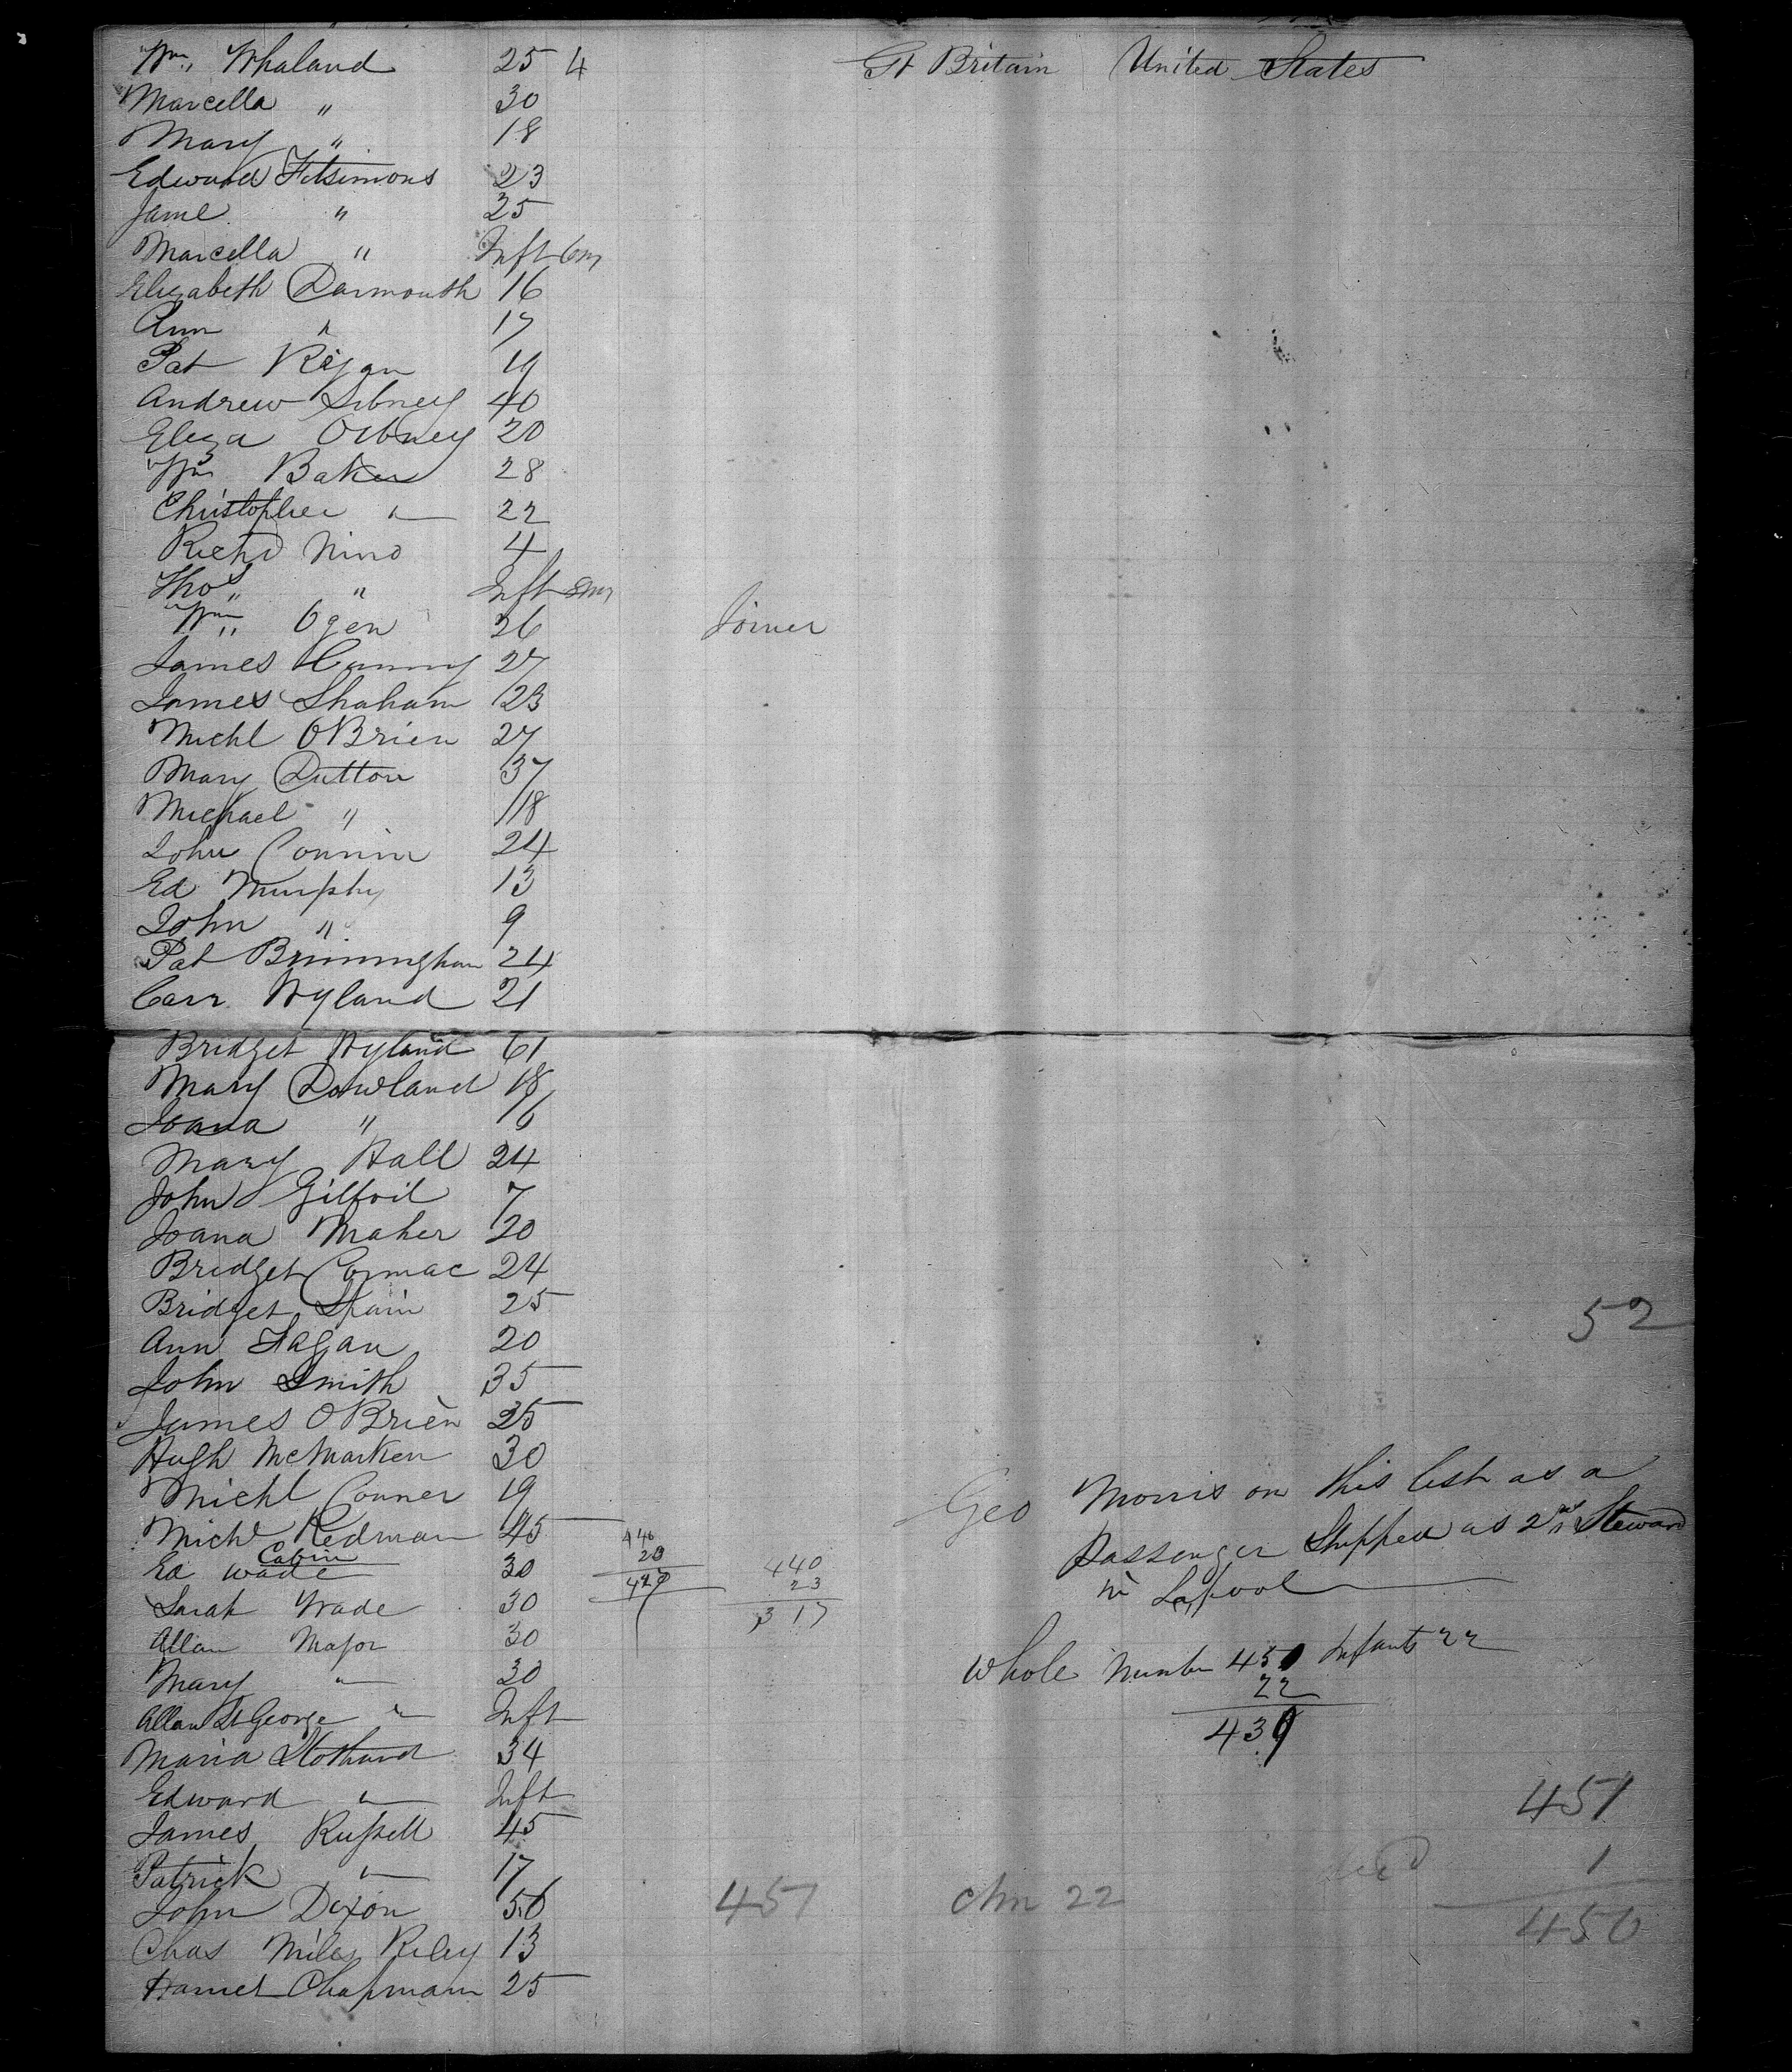 Wm Whaland 25 4 Gt Britain United States
Marcella " 30
Mary " 18
Edward Fitsimons 23
Jane " 25
Marcella " Inft 6m
Elizabeth Darmouth 16
Ann " 17
Pat Regan 19
Andrew Sibney 40
Eliza 20
Wm Baker 28
Christopher " 22
Richd Nind 4
Thos " Inft 8m
Wm Ogen 26 Joiner
James 27
James Shaham 23
Michl OBrien 27
Mary Dutton 37
Michael " 18
John Connin 24
Ed Murphy 13
John " 9
Pat Brimingham 24
Carr Hyland 21
Bridget Hyland 61
Mary Dowland 18
Joana " 16
Mary Hall 24
John Gilfoil 7
Joana Maher 20
Bridget Cormac 24
Bridget Spain 25
52
Ann Fagan 20
John Smith 35
James OBrien 25
Hugh McMarken 30
Michl Conner 19
Geo Morris on this list as a
passenger Shipped as 2nd Steward
in Lpool
Michl Redman 45
Cabin
Ed Wade 30
446
20
429
440
23
317
Sarah Wade 30
Allan Major 30
Whole Number 450 Infants 22
22
439
Mary " 30
Allan St George " Inft
Maria Stothard 34
Edward " Inft
451
James Russell 45
Patrick " 17
died 1
John Dixon 56
457 chn 22
450
Chas Miles Riley 13
Harriet Chapman 25